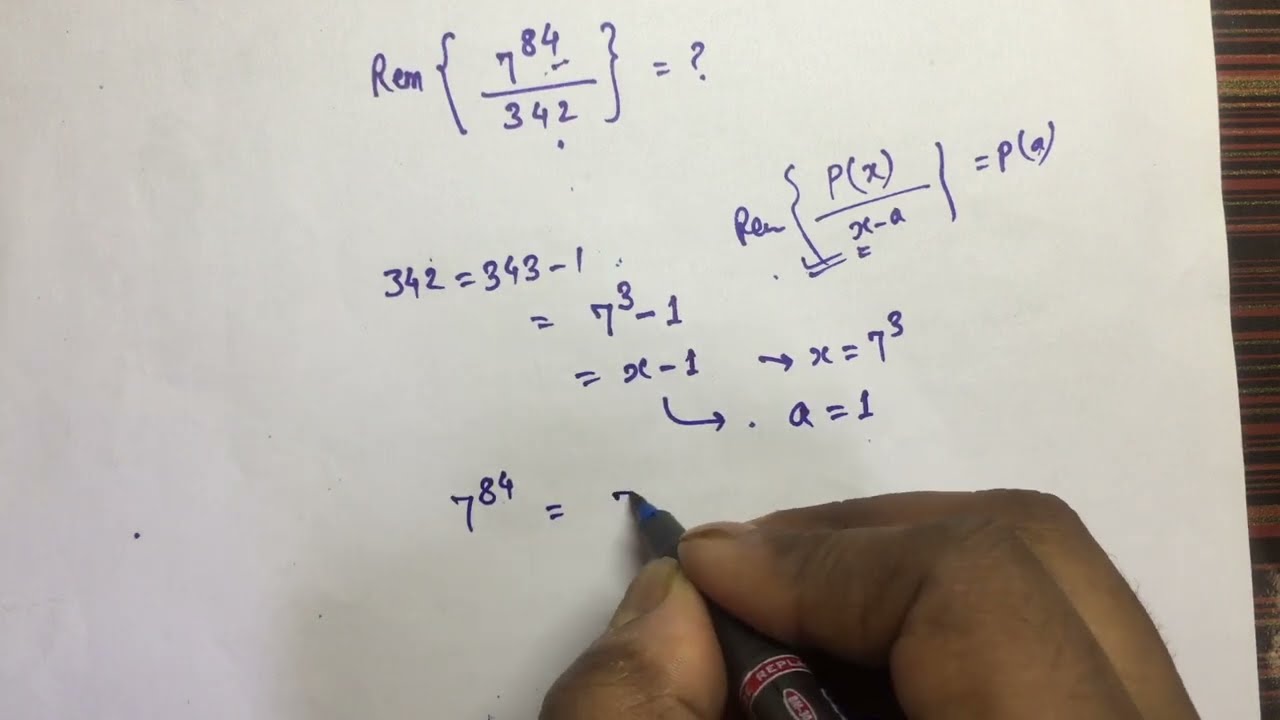 Rem { 7^84 / 342 } = ?
Rem { P(x) / x-a } = P(a)
342 = 343 - 1
= 7^3 - 1
= x - 1 → x = 7^3
a = 1
7^84 = 7
REPLA